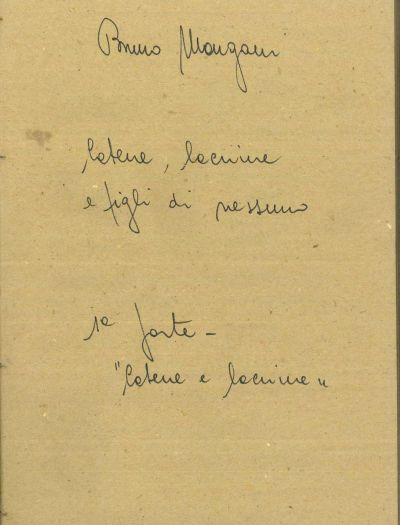 Bruno Mangani
Catene, lacrime
e figli di nessuno
1a parte -
"Catene e lacrime"